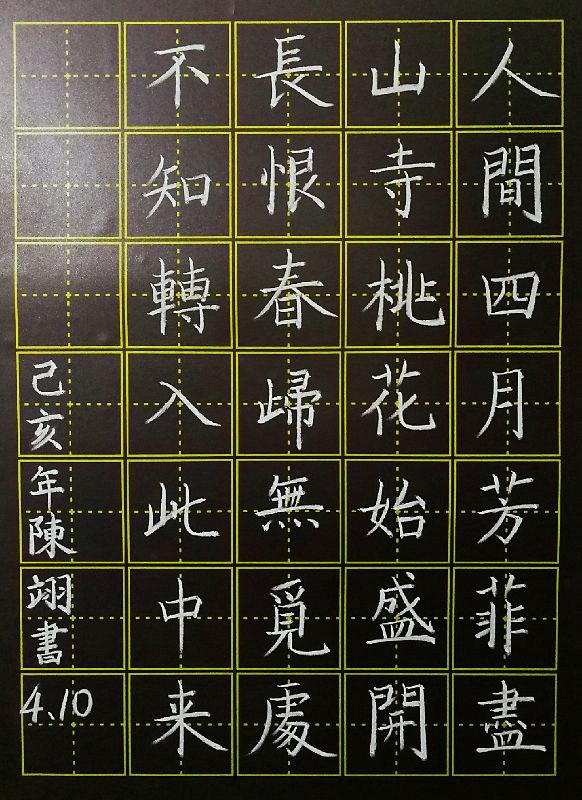 人間四月芳菲盡
山寺桃花始盛開
長恨春歸無覓處
不知轉入此中来
己亥年陳翊書
4.10